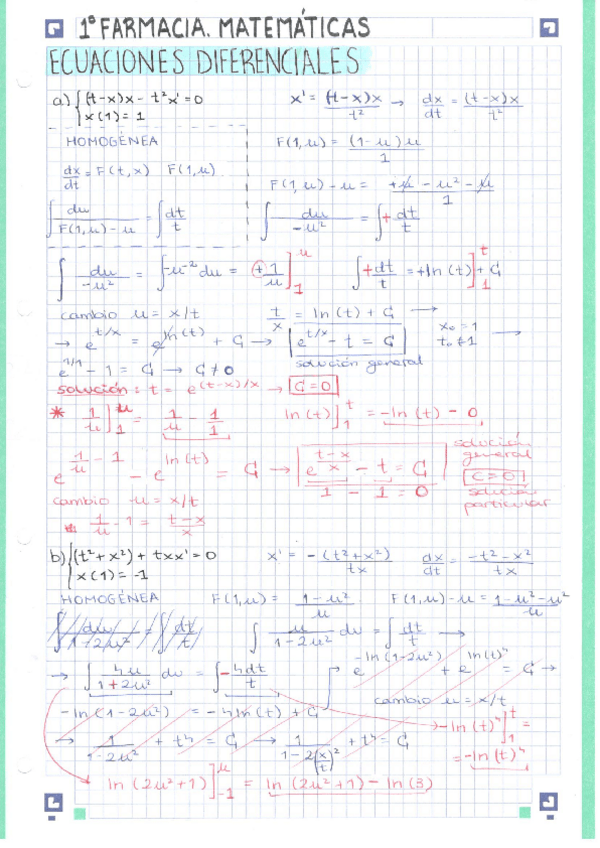 1º FARMACIA. MATEMÁTICAS
ECUACIONES DIFERENCIALES
a) {(t-x)x - t²x' = 0
x(1) = 1
x' = (t-x)x / t² → dx/dt = (t-x)x / t²
HOMOGÉNEA
F(1,u) = (1-u)u / 1
dx/dt = F(t,x) F(1,u)
F(1,u) - u = +u - u² - u / 1
∫ du / F(1,u) - u = ∫ dt/t
∫ du / -u² = ∫ + dt/t
∫ du / -u² = ∫ -u⁻² du = + 1/u ]₁ᵘ
∫ + dt/t = + ln(t) ]₁ᵗ + C
cambio u = x/t
t/x = ln(t) + C →
→ e^(t/x) = e^(ln(t)) + C → e^(t/x) - t = C
x₀ = 1
t₀ = 1 →
solución general
e^(1/1) - 1 = C → C ≠ 0
solución: t = e^((t-x)/x) → C = 0
* 1/u ]₁ᵘ = 1/u - 1/1
ln(t) ]₁ᵗ = -ln(t) - 0
e^(1/u - 1) - e^(ln(t)) = C → e^((t-x)/x) - t = C
solución general
1 - 1 = 0
C = 0
solución particular
cambio u = x/t
1/u - 1 = (t-x)/x
b) {(t² + x²) + txx' = 0
x(1) = -1
x' = -(t² + x²) / tx
dx/dt = -t² - x² / tx
HOMOGÉNEA
F(1,u) = 1 - u² / u
F(1,u) - u = 1 - u² - u² / u
∫ du / 1 - 2u² = ∫ dt/t
∫ u / 1 - 2u² du = ∫ dt/t →
→ ∫ 4u / 1 + 2u² du = ∫ -4dt / t
e^(-ln(1-2u²)) + e^(ln(t)⁴) = C →
cambio u = x/t
-ln(1-2u²) = -4ln(t) + C
→ 1 / 1-2u² + t⁴ = C → 1 / 1-2(x/t)² + t⁴ = C
-ln(t)⁴ ]₁ᵗ =
= -ln(t)⁴
ln(2u²+1) ]₋₁ᵘ = ln(2u²+1) - ln(3)